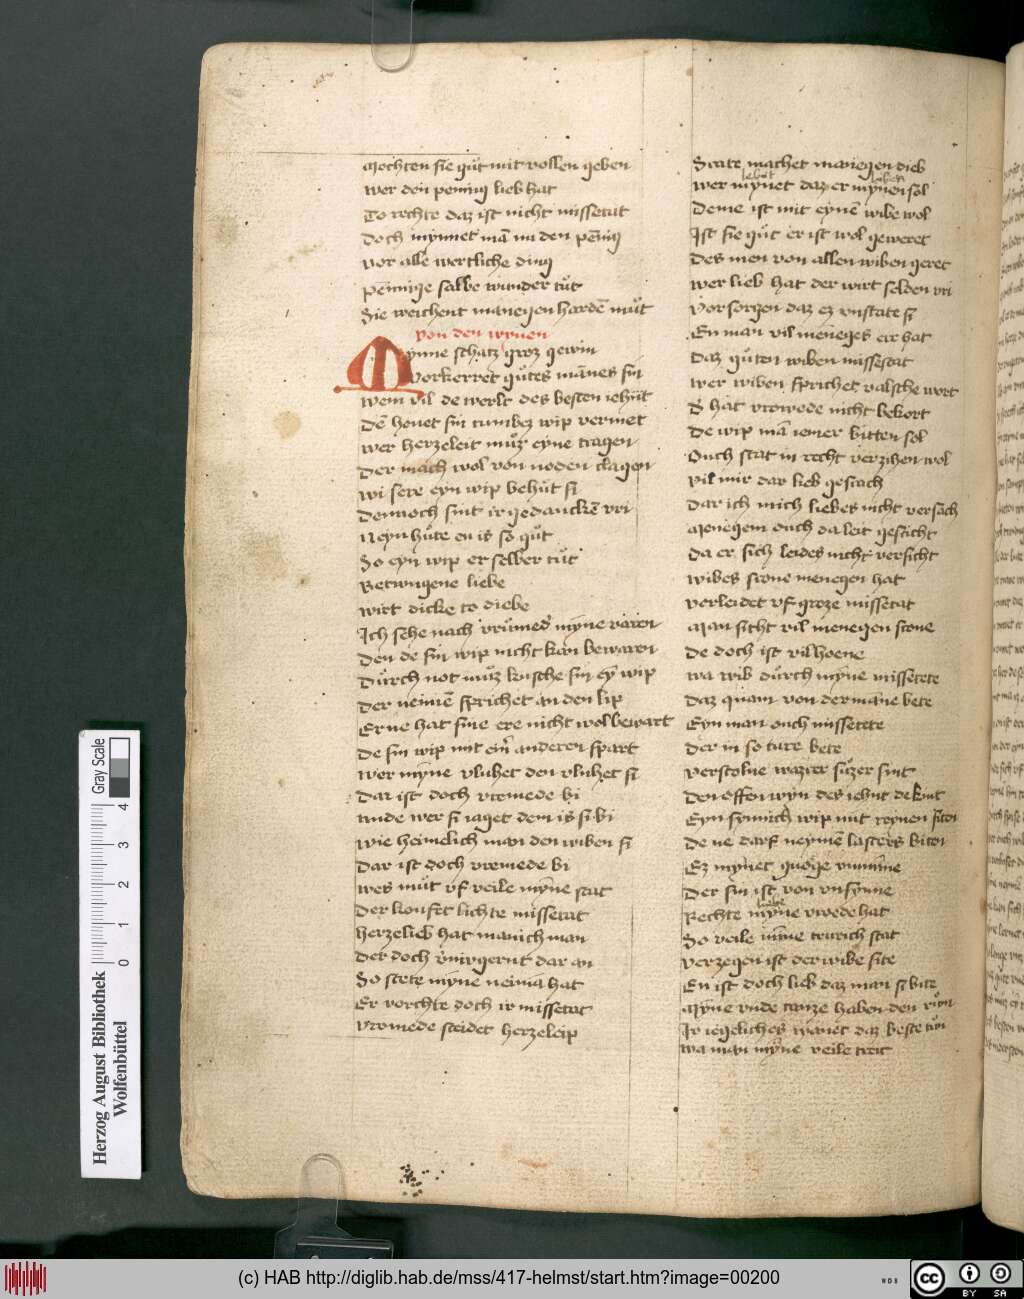 Mochten sie gůt mit vollen geben
wer den pennig lieb hat
To rechte daz ist nicht missetat
Doch mynnet mā nu den pēnig
vor alle wertliche ding
pēninge salbe wunder tůt
Sie weichent manegen hardē můt
von den wyuen
Mynne schatz groz gewin
Vorkerret gůtes mānes sin
wem vil de werlt des besten iehůt
Dē honet sin tumbez wip
wer herzeleit můz eyne tragen
Der mach wol von noden clagen
wi sere eyn wip behůt si
Dennoch sint ir gedanckē vri
Neyn hůte en is so gůt
So eyn wip er selber tůt
Betwngene liebe
wirt dicke to diebe
Ich sehe nach myne varen
Den de sin wip nicht kan bewaren
Důrch not můz kusche sin wip
Der neimē sprichet an den lip
Er ne hat sine ere nicht wol bewart
De sin wip mit anderen spart
wer myne vluhet den vluhet si
Dar ist doch vremede bi
unde wer si iaget dem is si bi
wie heimelich man den wiben si
Dar ist doch vremede bi
wes můt vf veile myne stat
Der koufet lichte missetat
herzelieb hat manich man
Der doch dar an
So stete myne neimā hat
Er vorchte doch ir missetat
vromede scidet herzeleip
State machet manegen dieb
lebet leben
wer mynet daz er mynen sol
Deme ist mit eynē wibe wol
Ist sie gůt er ist wol geweret
Des men von allen wiben geret
wer lieb hat der wirt selden vri
Vor sorgen daz ez vnstate si
En man vil meneges ere hat
Daz gůten wiben missestat
wer wiben sprichet valsche wort
hat vrowede nicht bekort
De wip mā iemer bitten sol
Ouch stat in recht verzihen wol
vil mir dar lieb gesach
Dar ich mich liebes nicht versach
Menegem ouch da leit geschicht
Da er sich leides nicht versicht
wibes scone menegen hat
verleidet vf groze missetat
Man sicht vil menegen scone
De doch ist vil hoene
wa wib důrch myne missetete
Daz quam von der mane bete
Eyn man ouch missetete
Der in so ture bete
verstolne wazzer sůzer sint
Den offen wyn des iehnt de kint
Eyn wip mit reynen siten
De ne darf neymē lasters biten
Ez mynet vnmine
Der sin ist von vnsynne
liebe
Rechte myne vroede hat
So veile mine trurich stat
verzegen ist der wibe site
En ist doch lieb daz man si bite
Myne vnde tanze haben den
Ir iegeliches wenet daz beste
wa man myne veile treit
Gray Scale
4
3
2
1
0
Herzog August Bibliothek
Wolfenbüttel
(c) HAB http://diglib.hab.de/mss/417-helmst/start.htm?image=00200
WDB
cc
BY SA